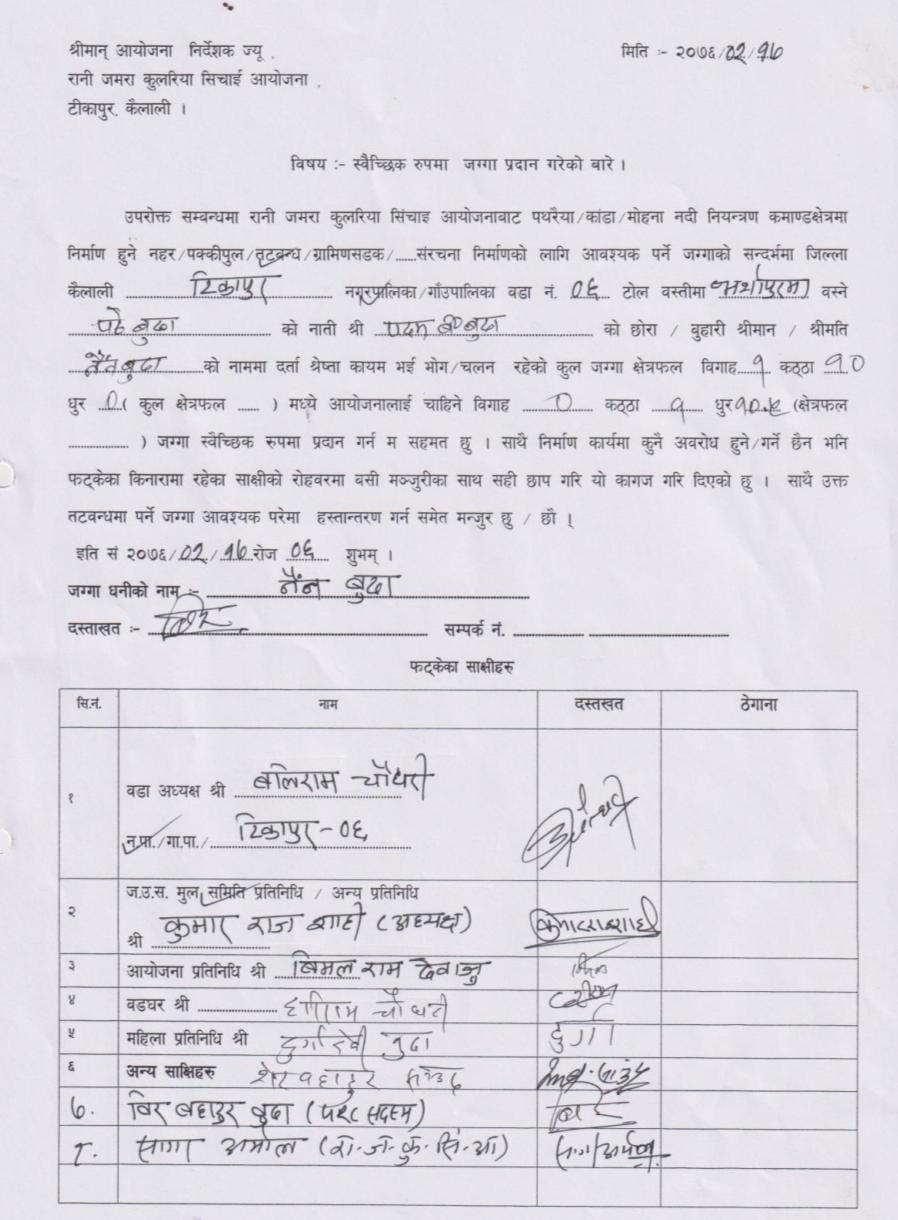 श्रीमान् आयोजना निर्देशक ज्यू ,
मिति :- २०७६/02/१७
रानी जमरा कुलरिया सिचाई आयोजना ,
टीकापुर, कैलाली ।
विषय :- स्वैच्छिक रुपमा जग्गा प्रदान गरेको बारे ।
उपरोक्त सम्बन्धमा रानी जमरा कुलरिया सिंचाइ आयोजनावाट पथरैया/कांडा/मोहना नदी नियन्त्रण कमाण्डक्षेत्रमा
निर्माण हुने नहर/पक्कीपुल/तटबन्ध/ग्रामिणसडक/......संरचना निर्माणको लागि आवश्यक पर्ने जग्गाको सन्दर्भमा जिल्ला
कैलाली टिकापुर नगरपालिका/गाँउपालिका वडा नं. ०६ टोल वस्तीमा वस्ने
बुढा को नाती श्री पदम बुढा को छोरा / वुहारी श्रीमान / श्रीमति
नैन बुढा को नाममा दर्ता श्रेष्ता कायम भई भोग/चलन रहेको कुल जग्गा क्षेत्रफल विगाह १ कठ्ठा १०
धुर 0 ( कुल क्षेत्रफल ...... ) मध्ये आयोजनालाई चाहिने विगाह 0 कठ्ठा १ धुर १०.५ (क्षेत्रफल
................ ) जग्गा स्वैच्छिक रुपमा प्रदान गर्न म सहमत छु । साथै निर्माण कार्यमा कुनै अवरोध हुने/गर्ने छैन भनि
फट्केका किनारामा रहेका साक्षीको रोहवरमा बसी मञ्जुरीका साथ सही छाप गरि यो कागज गरि दिएको छु । साथै उक्त
तटवन्धमा पर्ने जग्गा आवश्यक परेमा हस्तान्तरण गर्न समेत मन्जुर छु / छौ ।
इति सं २०७६/02/१७ रोज ०६ शुभम् ।
जग्गा धनीको नाम :- नैन बुढा
दस्ताखत :- बिर सम्पर्क नं. ................ ................
फट्केका साक्षीहरु
सि.नं. नाम दस्तखत ठेगाना
१ वडा अध्यक्ष श्री बलिराम चौधरी
न.पा./गा.पा./ टिकापुर-०६
२ ज.उ.स. मुल समिति प्रतिनिधि / अन्य प्रतिनिधि
श्री कुमार राज शाही (अध्यक्ष)
३ आयोजना प्रतिनिधि श्री बिमल राम देवाजु
४ वडघर श्री चौधरी
५ महिला प्रतिनिधि श्री दुर्गादेवी बुढा दुर्गा
६ अन्य साक्षिहरु शेर बहादुर
७. विर बहादुर बुढा बिर
८. सागर (रा.ज.कु.सिं.आ)